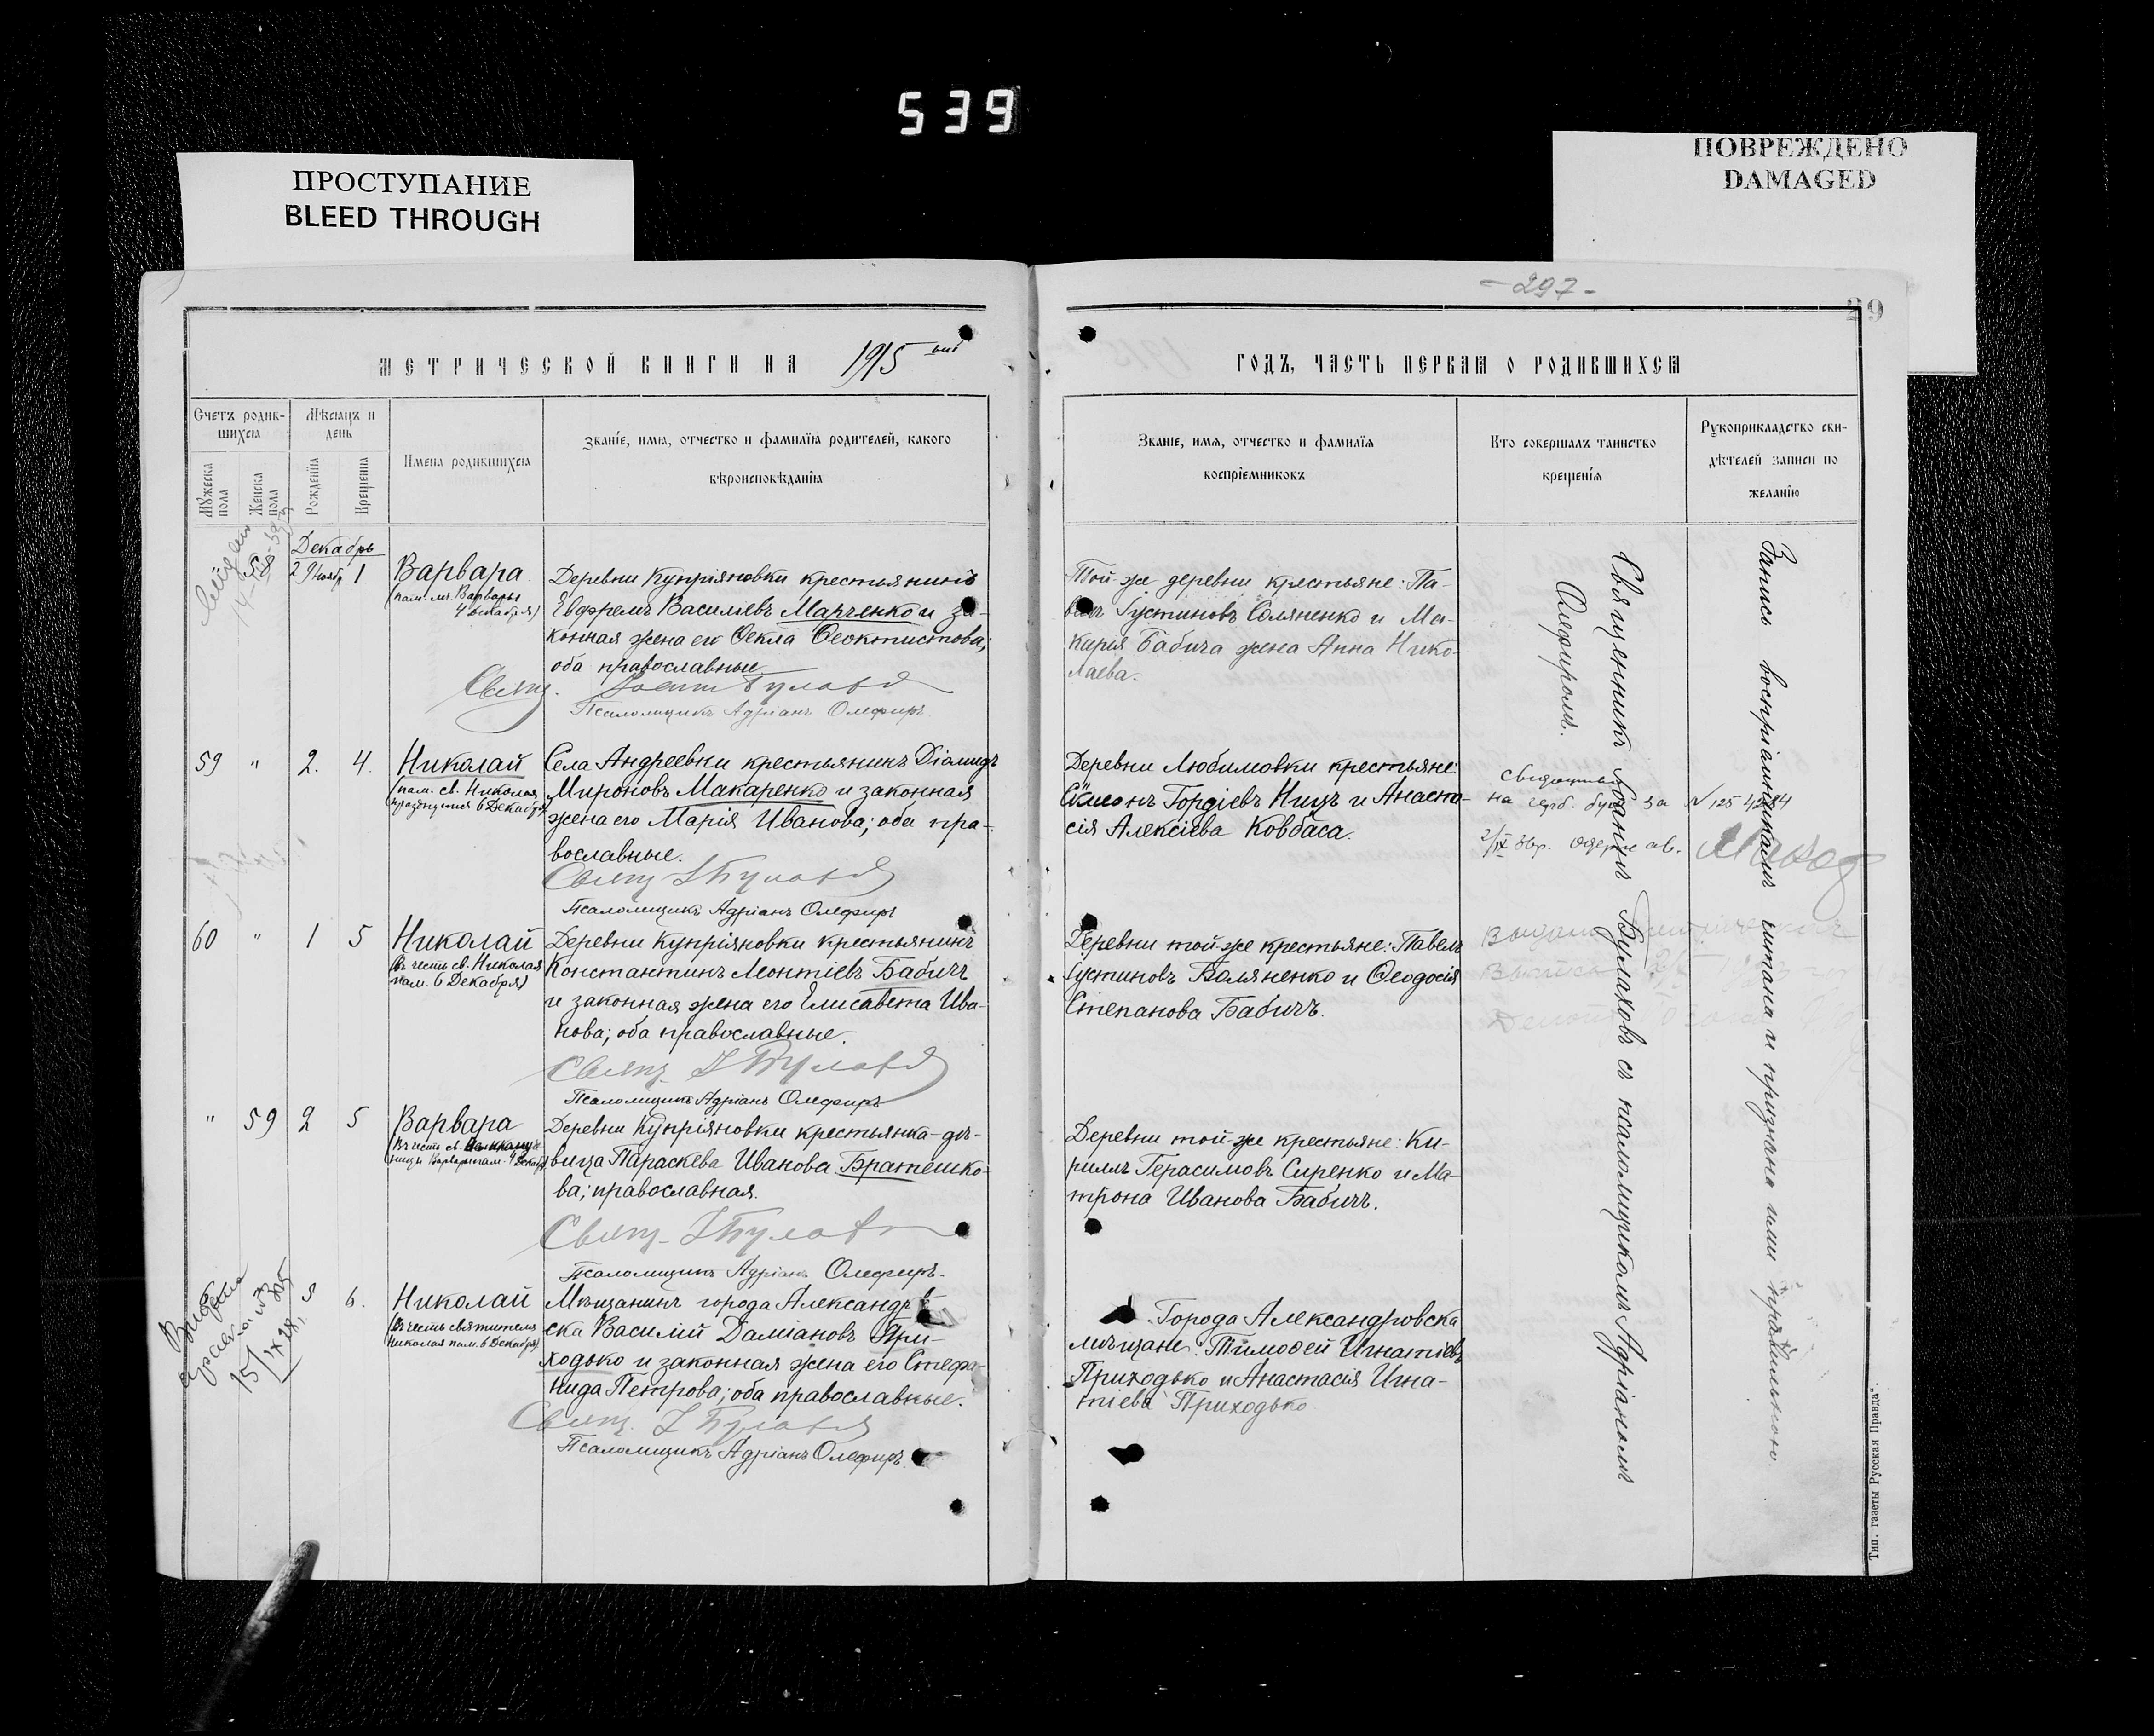 539
ПРОСТУПАНИЕ
BLEED THROUGH
ПОВРЕЖДЕНО
DAMAGED
-297-
29
МЕТРИЧЕСКОЙ КНИГИ НА 1915 ГОДЪ, ЧАСТЬ ПЕРВАЯ О РОДИВШИХСЯ
Счетъ родив-
шихся
Мужеска
пола
Женска
пола
Мѣсяцъ и
день
Рожденія
Крещенія
Имена родившихся
Званіе, имя, отчество и фамилія родителей, какого
вѣроисповѣданія
Званіе, имя, отчество и фамилія
воспріемниковъ
Кто совершалъ таинство
крещенія
Рукоприкладство сви-
дѣтелей записи по
желанію
Декабрь
58 29 Ноябр. 1
Варвара
(пам. мч. Варвары
4 декабря)
Деревни Купріяновки крестьянинъ
Евфремъ Василіевъ Марченко и за-
конная жена его Ѳекла Ѳеоктистова;
оба православные
Свящ.
Псаломщикъ Адріанъ Олефиръ
Той-же деревни крестьяне: Па-
велъ Іустиновъ и Ма-
карія Бабича жена Анна Нико-
лаева.
59 " 2. 4.
Николай
(пам. св. Николая
празднуемая 6 Декабря)
Села Андреевки крестьянинъ Діамидъ
Мироновъ Макаренко и законная
жена его Марія Иванова; оба пра-
вославные.
Свящ.
Псаломщикъ Адріанъ Олефиръ
Деревни Любимовки крестьяне:
Симеонъ Гордіевъ Ницъ и Анаста-
сія Алексіева Ковбаса.
на герб. за №
60 " 1 5
Николай
(въ честь св. Николая
пам. 6 Декабря)
Деревни Купріяновки крестьянинъ
Константинъ Леонтіевъ Бабичъ
и законная жена его Елисавета Ива-
нова; оба православные.
Свящ.
Псаломщикъ Адріанъ Олефиръ
Деревни той-же крестьяне: Павелъ
Іустиновъ и Ѳеодосія
Степанова Бабичъ.
" 59 2 5
Варвара
(въ честь св.
Варвары пам. 4 Декабр)
Деревни Купріяновки крестьянка-дѣ-
вица Параскева Иванова Братешко-
ва; православная.
Свящ.
Псаломщикъ Адріанъ Олефиръ.
Деревни той-же крестьяне: Ки-
риллъ Герасимовъ Сиренко и Ма-
трона Иванова Бабичъ.
5 6.
Николай
(въ честь святителя
Николая пам. 6 Декабря)
Мѣщанинъ города Александров-
ска Василій Даміановъ При-
ходько и законная жена его Стефа-
нида Петрова; оба православные.
Свящ.
Псаломщикъ Адріанъ Олефиръ.
Города Александровска
мѣщане: Тимоѳей Игнатіевъ
Приходько и Анастасія Игна-
тіева Приходько
Священникъ Іоаннъ Булаховъ съ псаломщикомъ Адріаномъ
Олефиромъ.
Запись воспріемникамъ читана и признана ими правильною.
Тип. газеты Русская Правда".